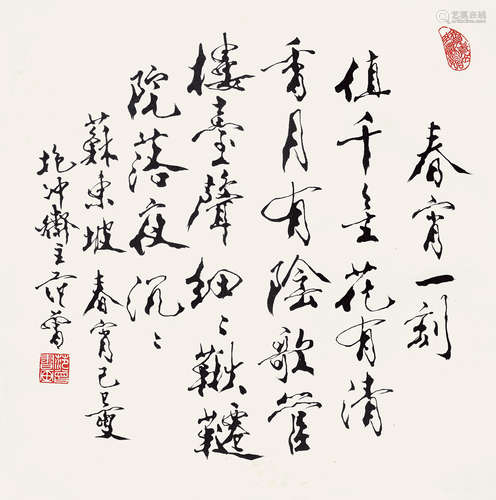 春宵一刻
值千金花有清
香月有陰歌管
樓臺聲細〻鞦韆
院落夜沉〻
蘇東坡春宵己丑
抱冲齋主范曾